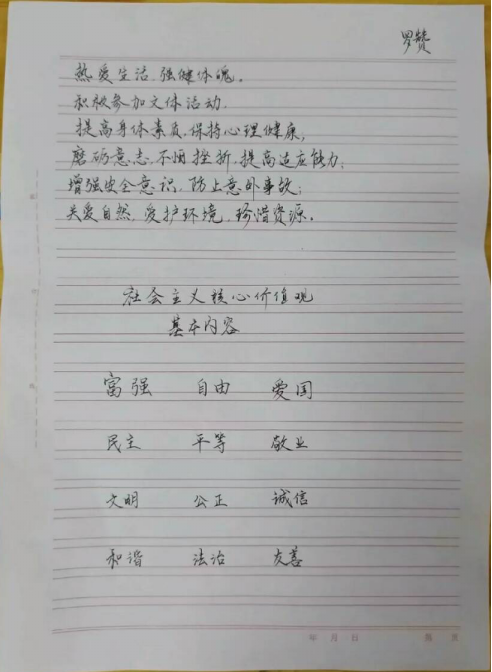 罗赞
热爱生活,强健体魄。
积极参加文体活动.
提高身体素质,保持心理健康,
磨砺意志,不怕挫折,提高适应能力;
增强安全意识,防止意外事故;
关爱自然,爱护环境,珍惜资源。
社会主义核心价值观
基本内容
富强 自由 爱国
民主 平等 敬业
文明 公正 诚信
和谐 法治 友善
年 月 日 第 页